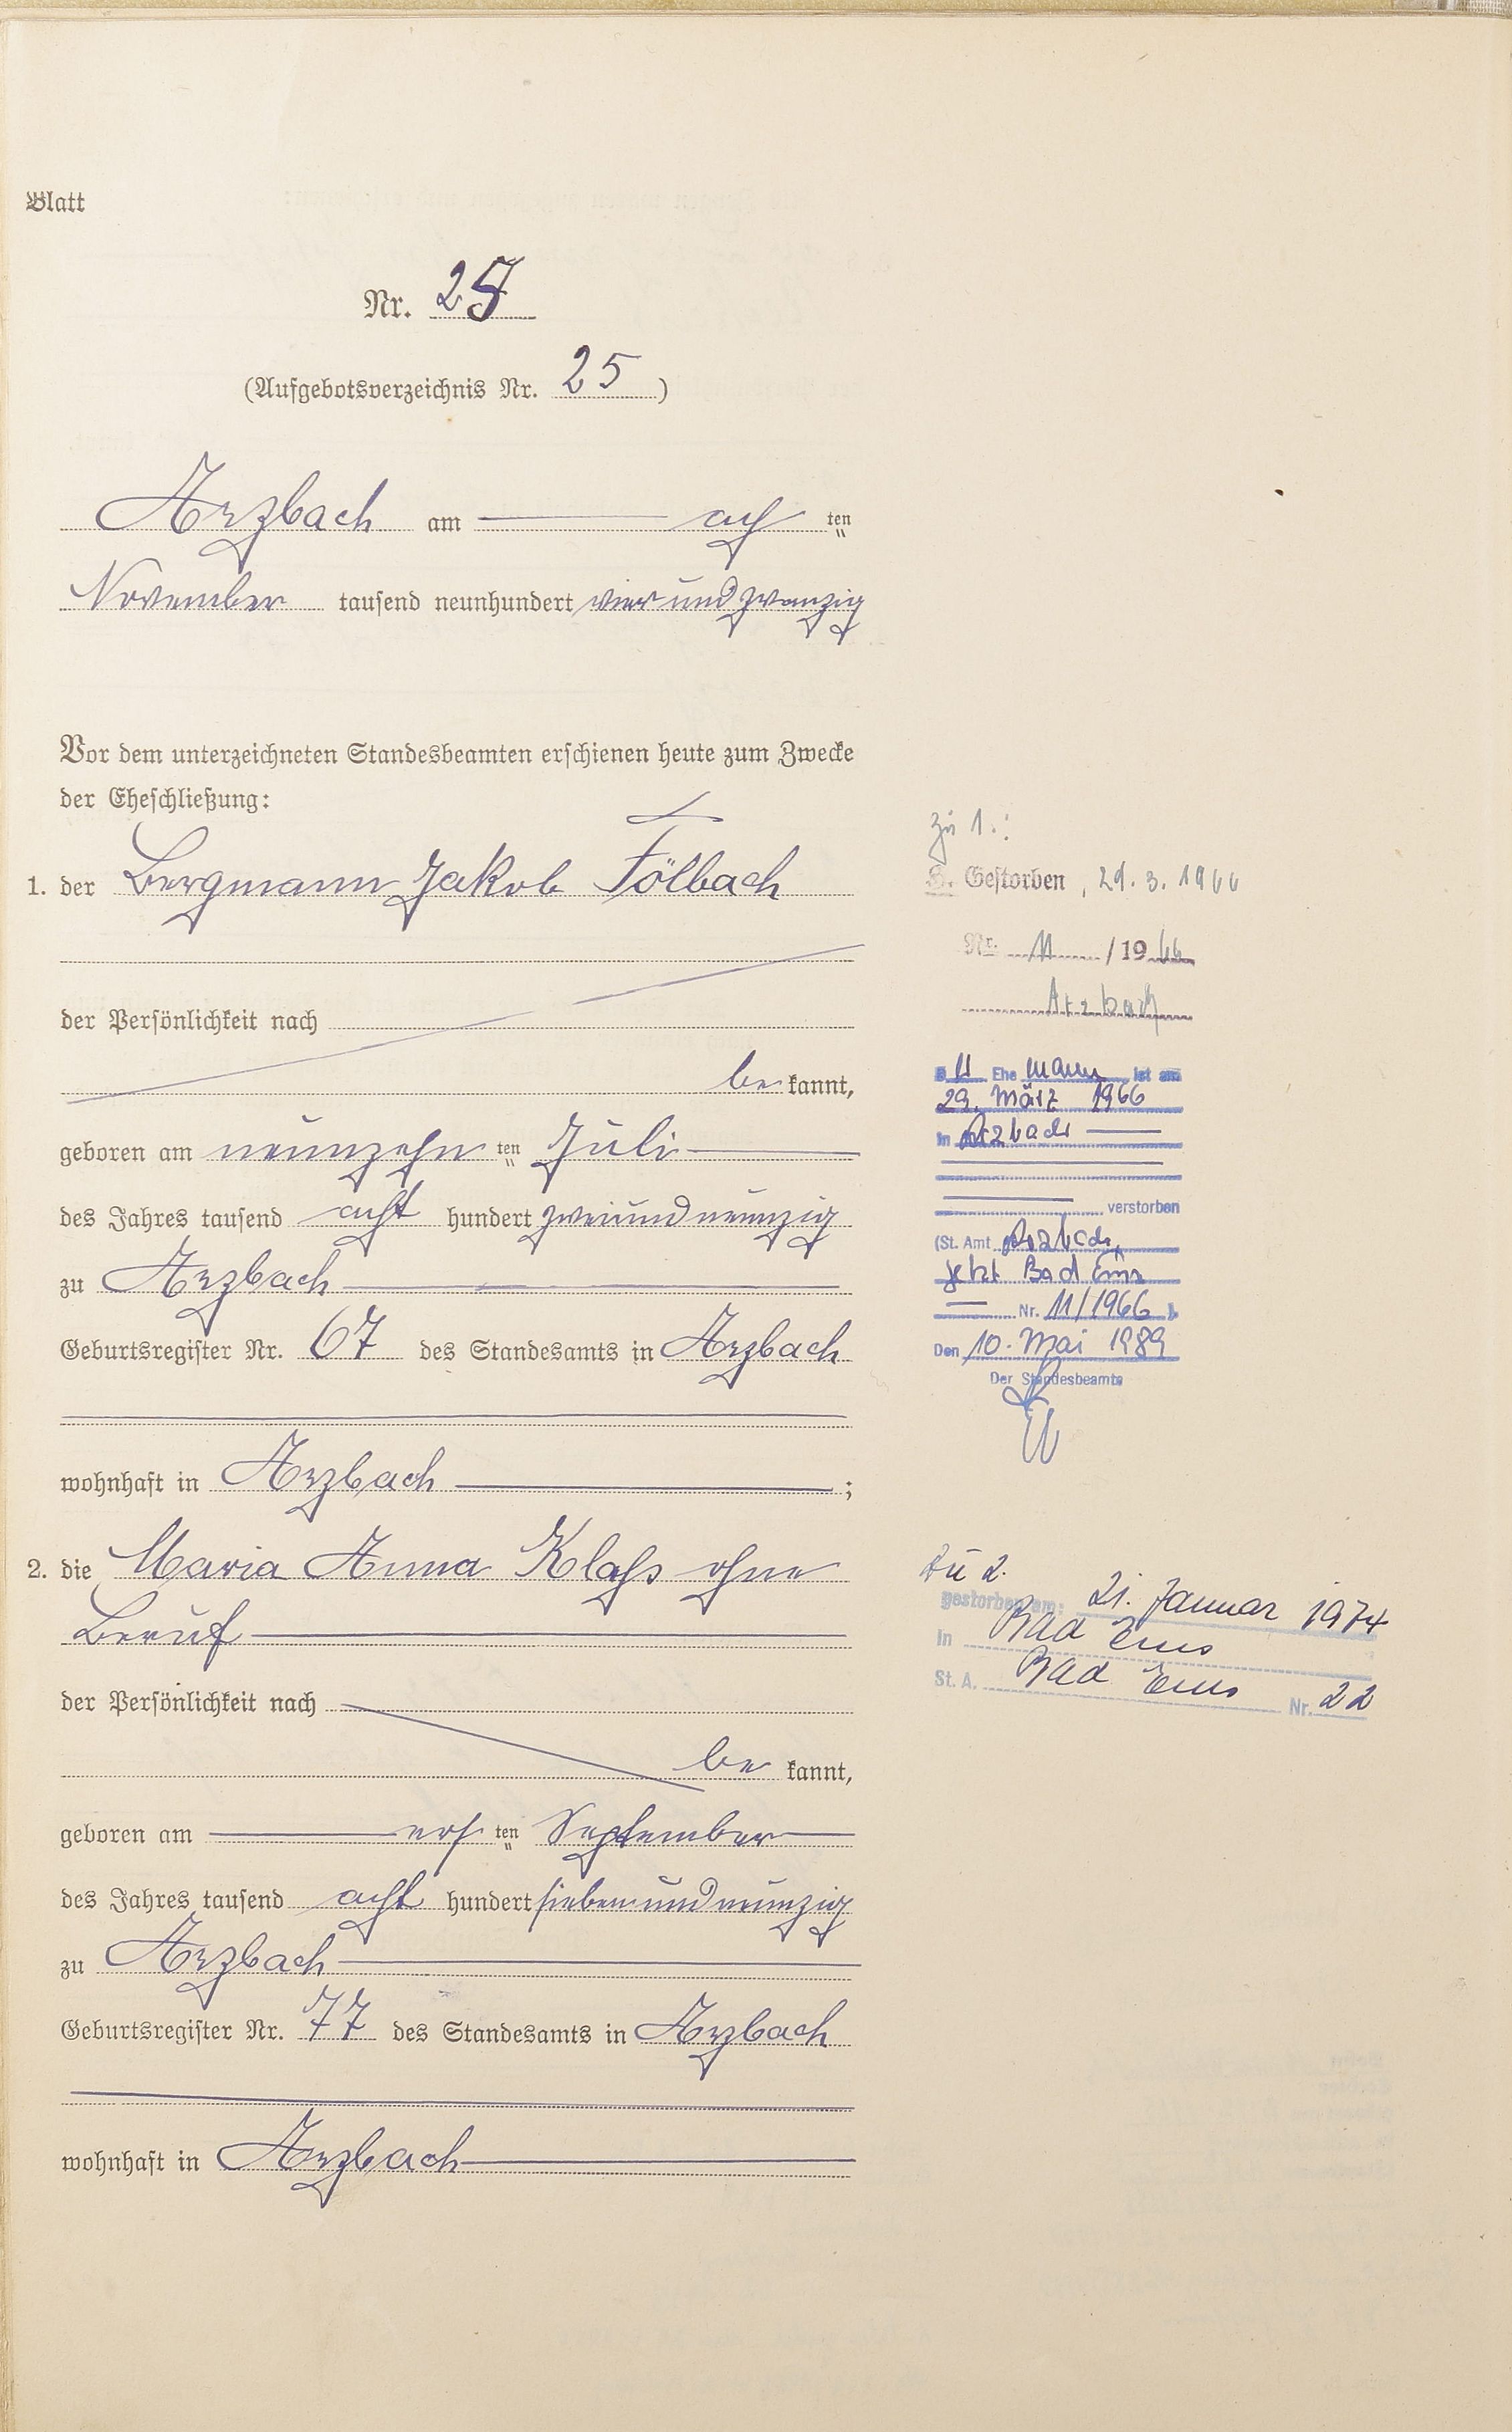 Blatt
Nr. 25
(Aufgebotsverzeichnis Nr. 25)
Arzbach am ach ten
November tausend neunhundert vierundzwanzig
Vor dem unterzeichneten Standesbeamten erschienen heute zum Zwecke
der Eheschließung:
1. der Bergmann Jakob Fölbach
der Persönlichkeit nach
be kannt,
geboren am neunzehn ten Juli
des Jahres tausend acht hundert zweiundneunzig
zu Arzbach
Geburtsregister Nr. 67 des Standesamts in Arzbach
wohnhaft in Arzbach ;
2. die Maria Anna Klaß ohne
Beruf
der Persönlichkeit nach
be kannt,
geboren am ers ten September
des Jahres tausend acht hundert siebenundneunzig
zu Arzbach
Geburtsregister Nr. 77 des Standesamts in Arzbach
wohnhaft in Arzbach
zu 1.:
Gestorben, 29.3.1966
Nr. 11 / 1966
Arzbach
Ehe mann ist am
29. März 1966
in Arzbach
verstorben
(St. Amt Arzbach,
jetzt Bad Ems
Nr. 11/1966 ).
Den 10. Mai 1989
Der Standesbeamte
zu 2.
gestorben am: 21. Januar 1974
In Bad Ems
St. A. Bad Ems Nr. 22